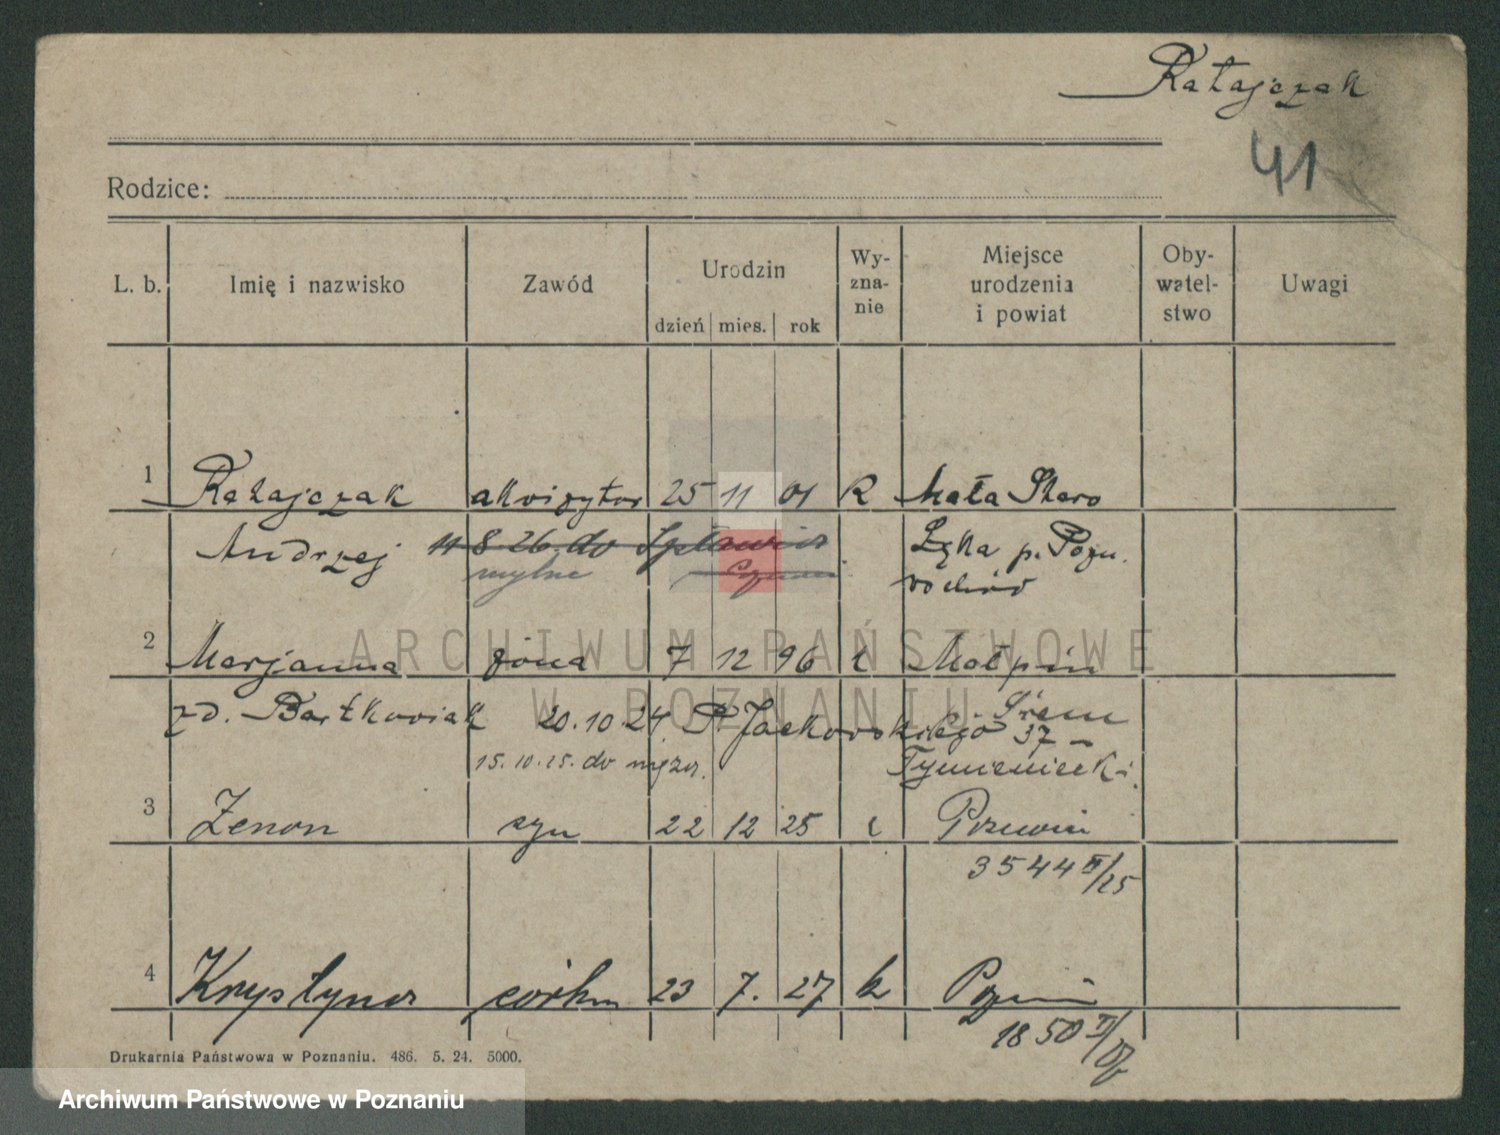 Ratajczak
41
Rodzice:
L. b. Imię i nazwisko Zawód Urodzin dzień mies. rok Wy-zna-nie Miejsce urodzenia i powiat Oby-watel-stwo Uwagi
1 Ratajczak akwizytor 25 11 01 R Mała Staro
Andrzej 11 8 26 do Spławia Łęka p. Pozn.
mylne wschód
ARCHIWUM PAŃSTWOWE
2 Marjanna żona 7 12 96 Małpin
W POZNANIU
zd. Bartkowiak 20.10.24 P. Jackowskiego 37 Śrem
15.10.25. do męża. Tymieniecki
3 Zenon syn 22 12 25 Poznań
3544 II/25
4 Krystyna córka 23 7. 27 k Poznań
1850 II/27
Drukarnia Państwowa w Poznaniu. 486. 5. 24. 5000.
Archiwum Państwowe w Poznaniu